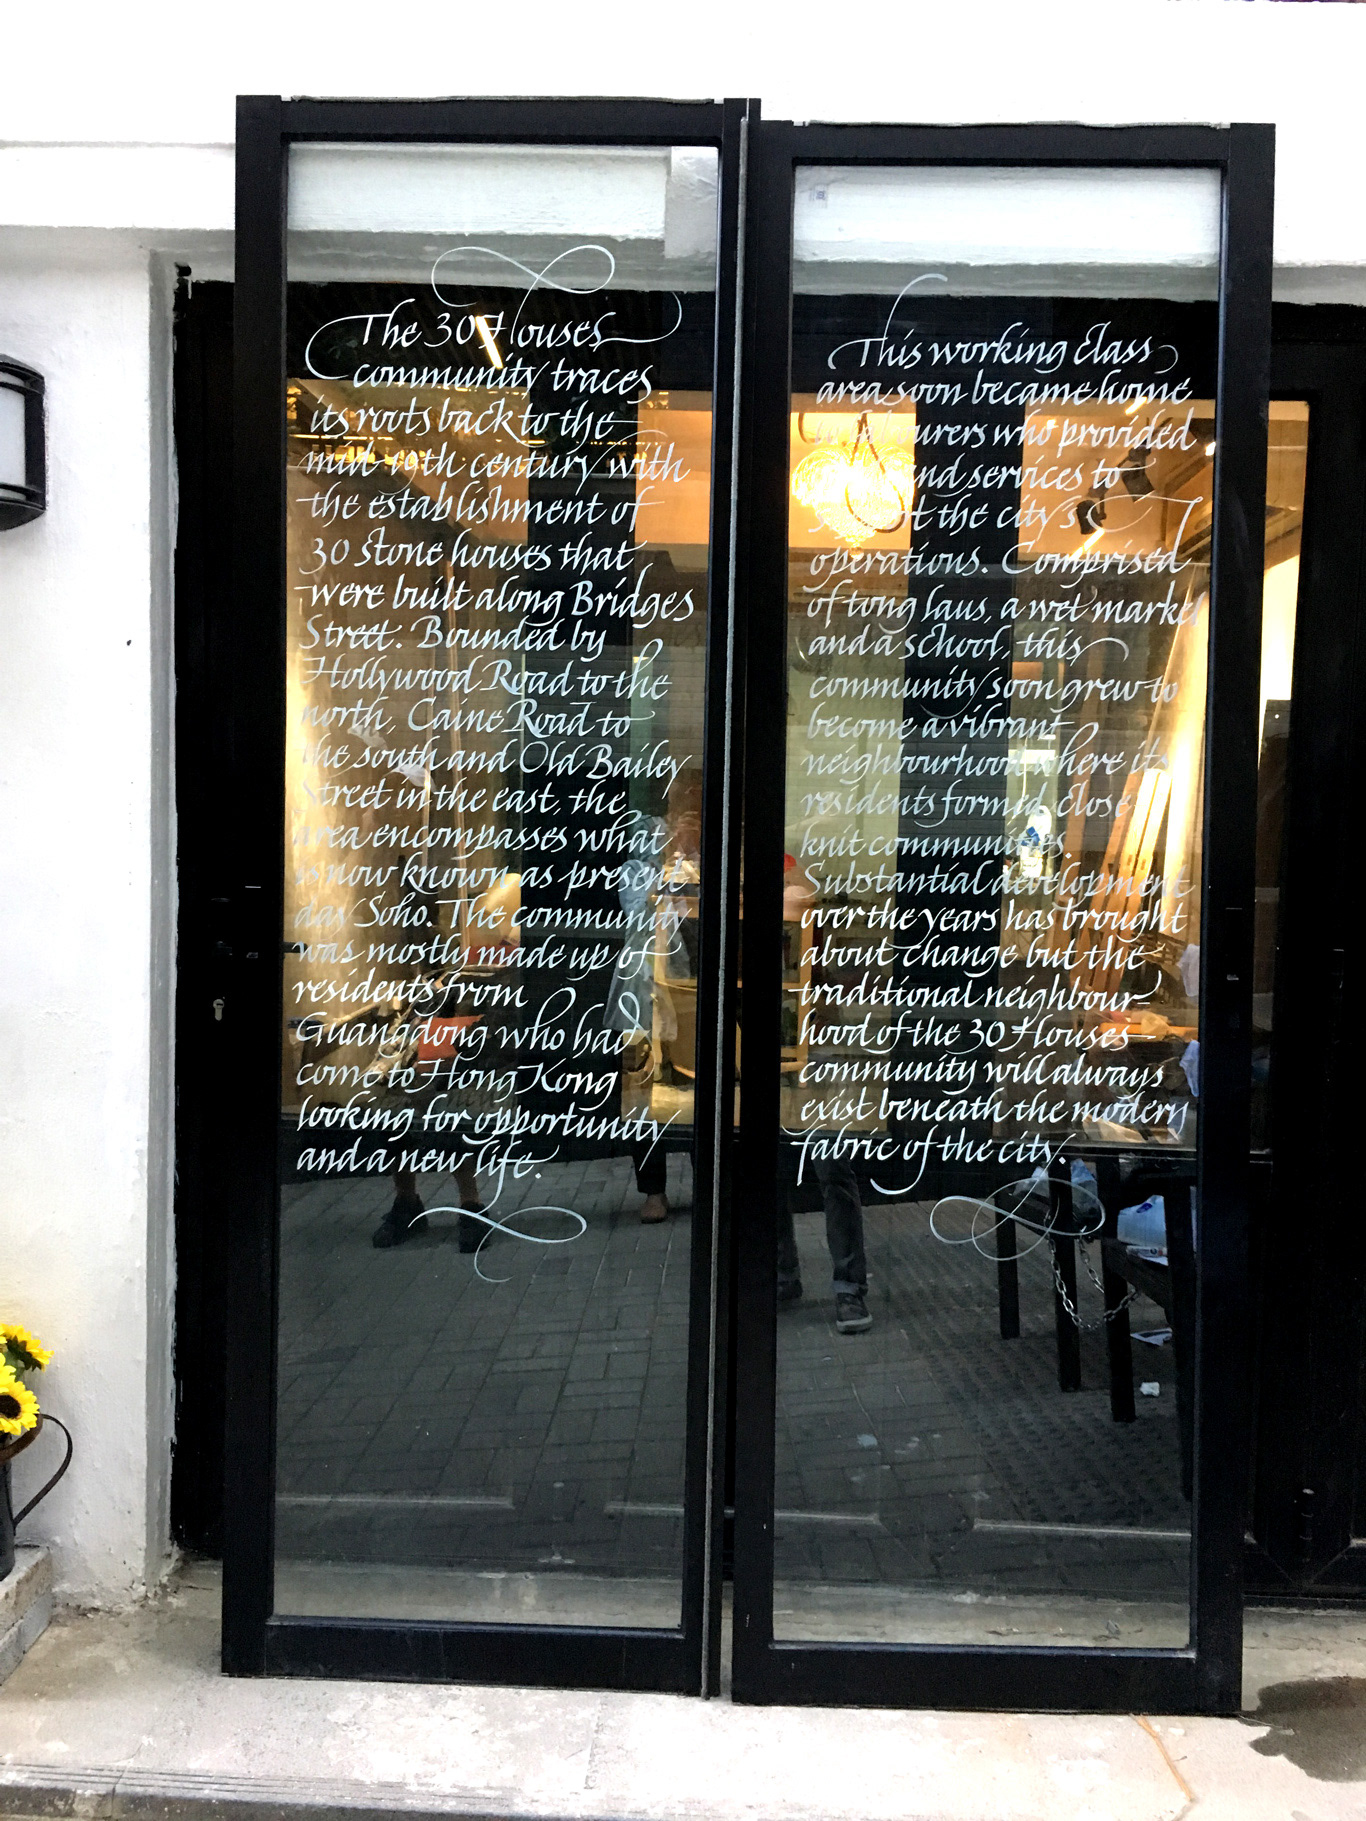 The 30 Houses
community traces
its roots back to the
mid-19th century with
the establishment of
30 stone houses that
were built along Bridges
Street. Bounded by
Hollywood Road to the
north, Caine Road to
the south and Old Bailey
Street in the east, the
area encompasses what
is now known as present
day Soho. The community
was mostly made up of
residents from
Guangdong who had
come to Hong Kong
looking for opportunity
and a new life.
This working class
area soon became home
to labourers who provided
and services to
support the city's
operations. Comprised
of tong laus, a wet market
and a school, this
community soon grew to
become a vibrant
neighbourhood where its
residents formed close
knit communities.
Substantial development
over the years has brought
about change but the
traditional neighbour-
hood of the 30 Houses
community will always
exist beneath the modern
fabric of the city.